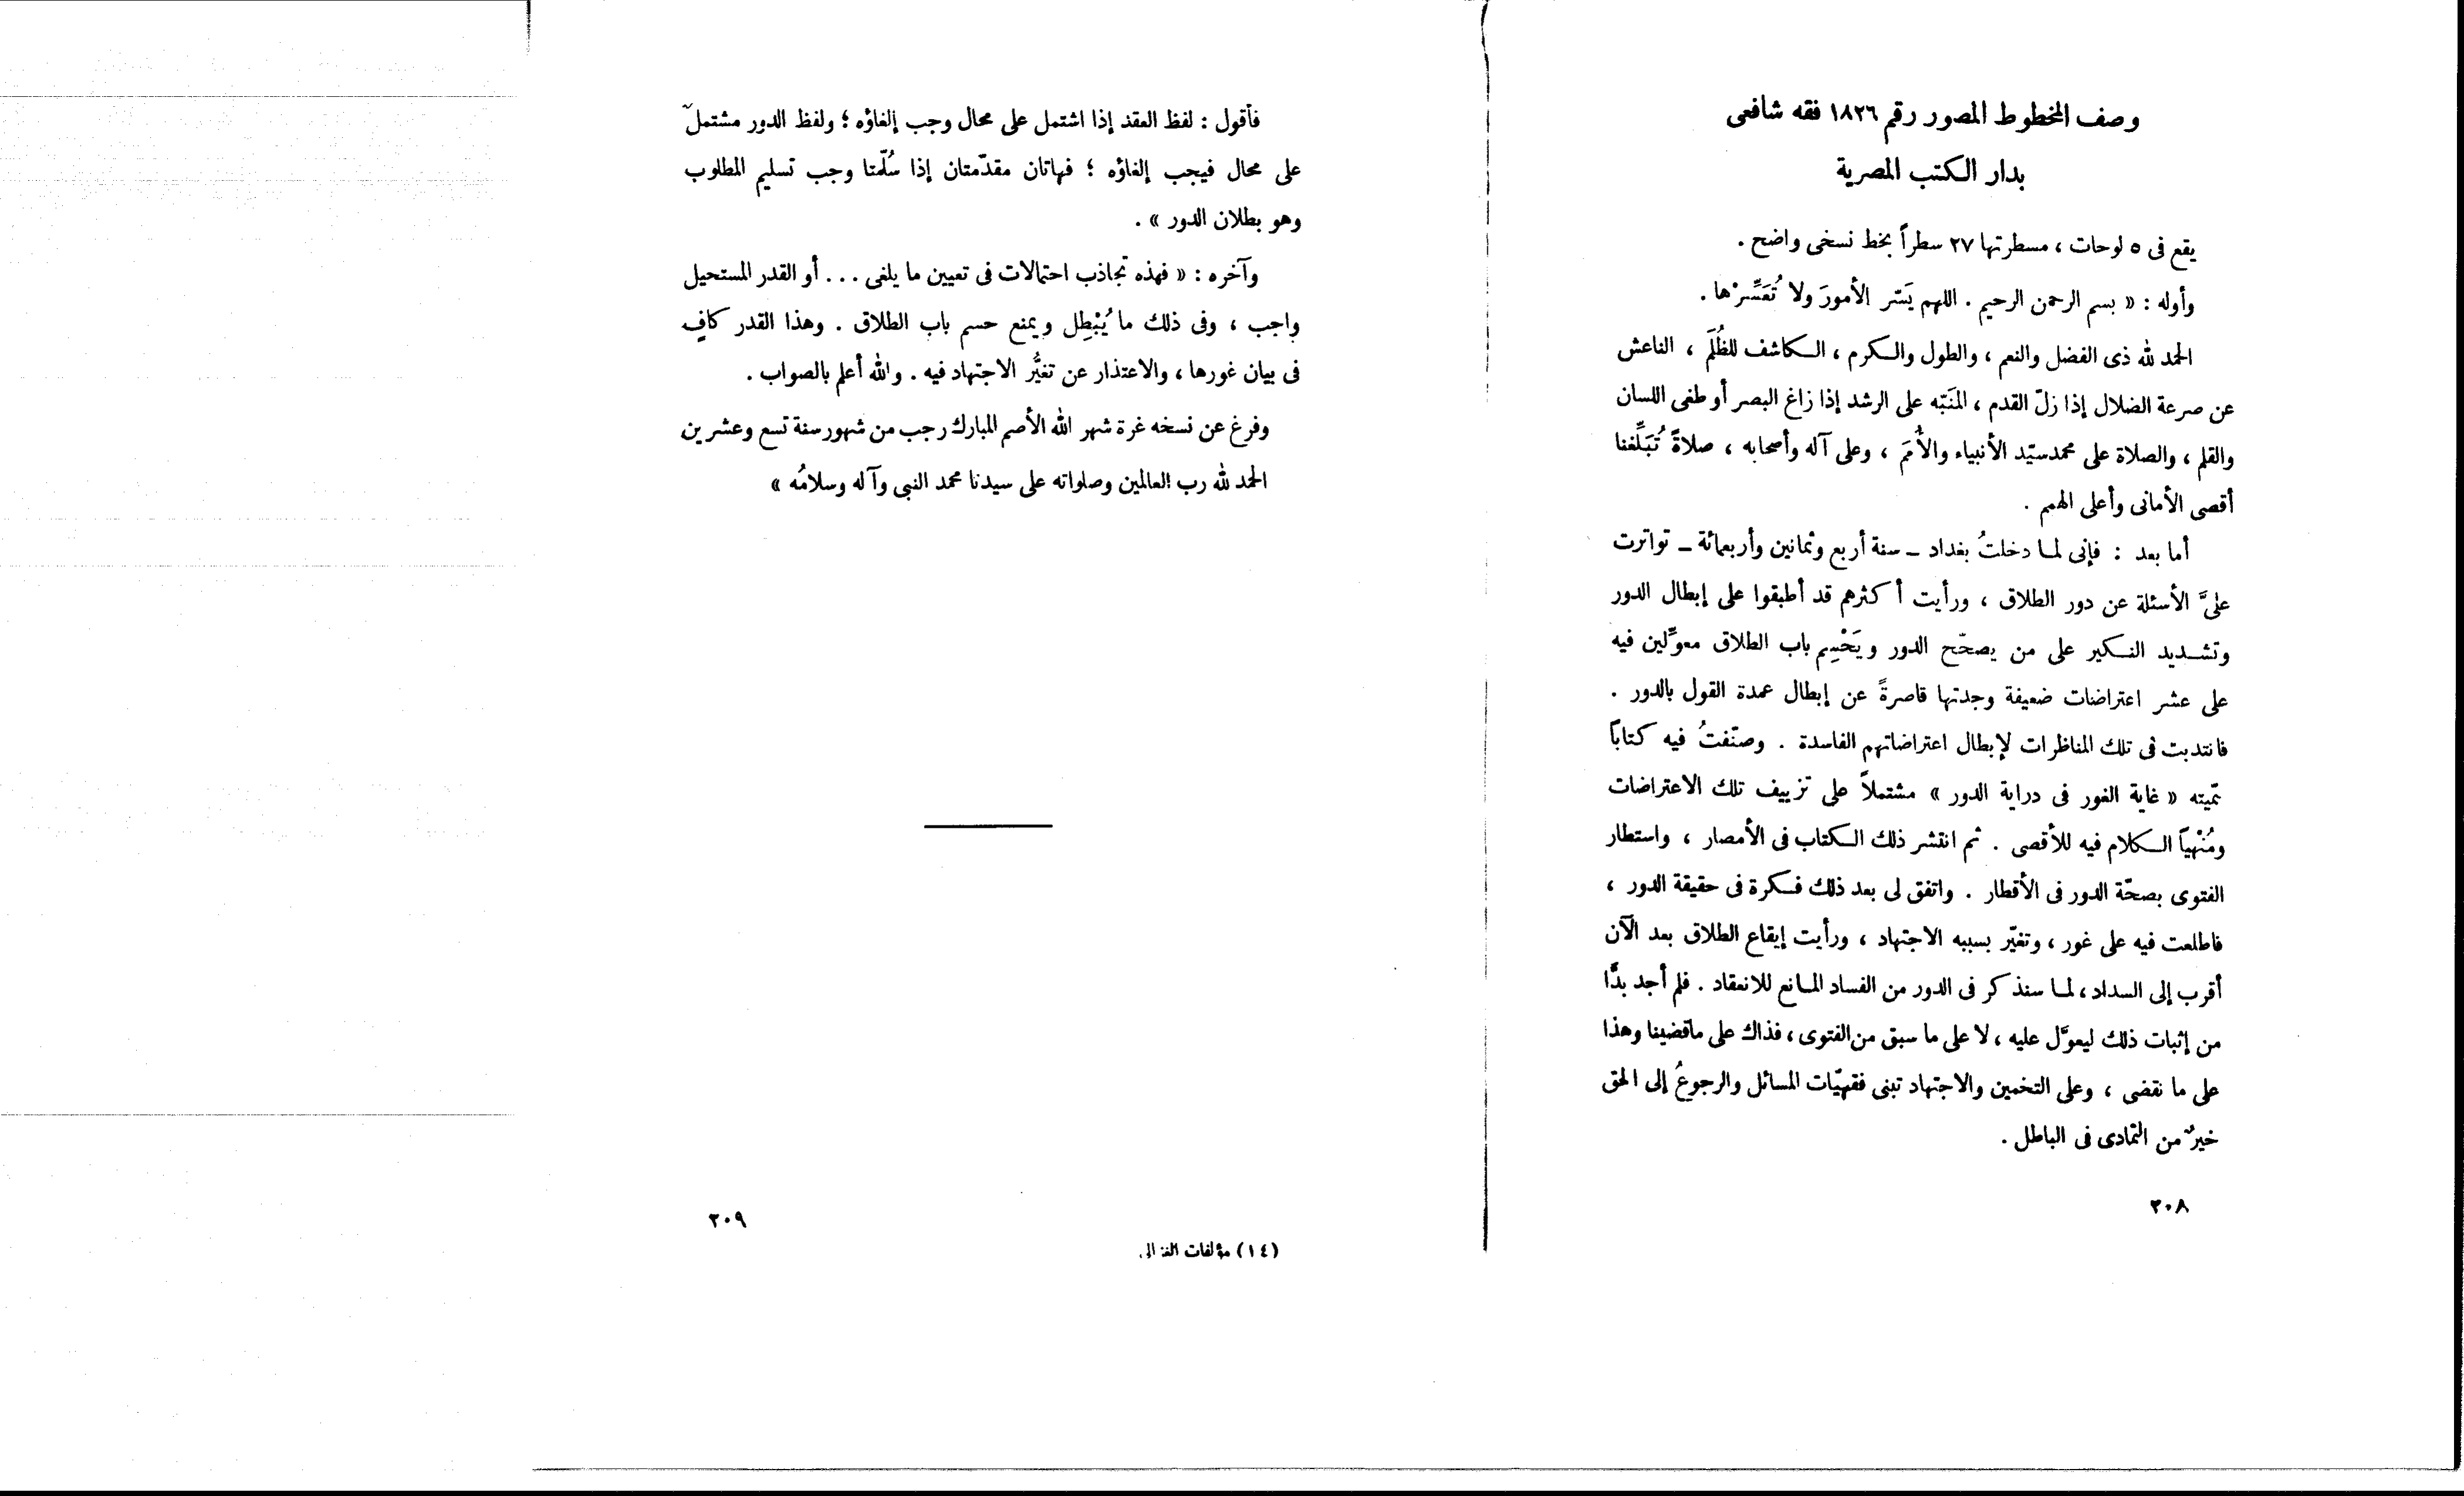 وصف المخطوط المصور رقم ١٨٢٦ فقه شافعى
بدار الكتب المصرية
يقع فى ٥ لوحات ، مسطرتها ٢٧ سطراً بخط نسخى واضح .
وأوله : « بسم الرحمن الرحيم . اللهم يَسّر الأمورَ ولا تُعَسِّرْها .
الحمد لله ذى الفضل والنعم ، والطول والكرم ، الكاشف للظُلَم ، الناعش
عن صرعة الضلال إذا زلّ القدم ، المنَبّه على الرشد إذا زاغ البصر أو طغى اللسان
والقلم ، والصلاة على محمد سيّد الأنبياء والأُمَم ، وعلى آله وأصحابه ، صلاةً تُبَلِّغنا
أقصى الأمانى وأعلى الهمم .
أما بعد : فإنى لما دخلتُ بغداد ــ سنة أربع وثمانين وأربعمائة ــ تواترت
علىَّ الأسئلة عن دور الطلاق ، ورأيت أكثرهم قد أطبقوا على إبطال الدور
وتشديد النكير على من يصحّح الدور ويَحْسِم باب الطلاق معوِّلين فيه
على عشر اعتراضات ضعيفة وجدتها قاصرةً عن إبطال عمدة القول بالدور .
فانتدبت فى تلك المناظرات لإبطال اعتراضاتهم الفاسدة . وصنّفتُ فيه كتاباً
سمّيته « غاية الغور فى دراية الدور » مشتملاً على تزييف تلك الاعتراضات
ومُنْهياً الكلام فيه للأقصى . ثم انتشر ذلك الكتاب فى الأمصار ، واستطار
الفتوى بصحّة الدور فى الأقطار . واتفق لى بعد ذلك فكرة فى حقيقة الدور ،
فاطلعت فيه على غور ، وتغيّر بسببه الاجتهاد ، ورأيت إيقاع الطلاق بعد الآن
أقرب إلى السداد ، لما سنذكر فى الدور من الفساد المانع للانعقاد . فلم أجد بدًّا
من إثبات ذلك ليعوَّل عليه ، لا على ما سبق من الفتوى ، فذاك على ما قضينا وهذا
على ما نقضى ، وعلى التخمين والاجتهاد تبنى فقهيّات المسائل والرجوعُ إلى الحق
خيرٌ من التمادى فى الباطل .
٢٠٨
فأقول : لفظ العقد إذا اشتمل على محال وجب إلغاؤه ؛ ولفظ الدور مشتملٌ
على محال فيجب إلغاؤه ؛ فهاتان مقدّمتان إذا سُلّمتا وجب تسليم المطلوب
وهو بطلان الدور » .
وآخره : « فهذه تجاذب احتمالات فى تعيين ما يلغى ... أو القدر المستحيل
واجب ، وفى ذلك ما يُبْطِل ويمنع حسم باب الطلاق . وهذا القدر كافٍ
فى بيان غورها ، والاعتذار عن تغيُّر الاجتهاد فيه . والله أعلم بالصواب .
وفرغ عن نسخه غرة شهر الله الأصم المبارك رجب من شهور سنة تسع وعشرين
الحمد لله رب العالمين وصلواته على سيدنا محمد النبى وآله وسلامُه »
٢٠٩
(١٤) مؤلفات الغزالى